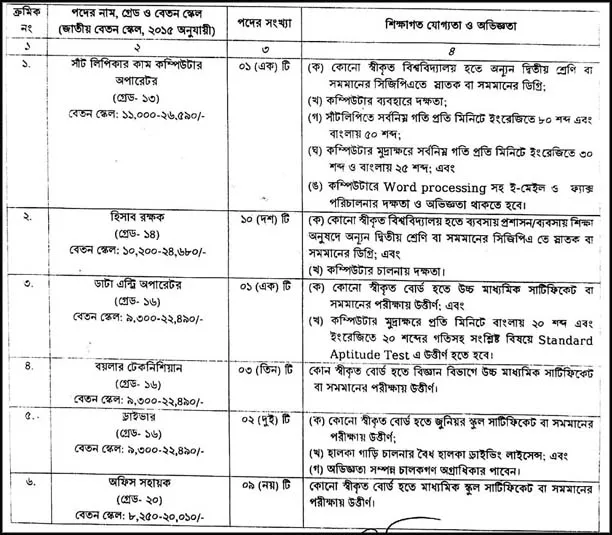 ক্রমিক নং
পদের নাম, গ্রেড ও বেতন স্কেল
(জাতীয় বেতন স্কেল, ২০১৫ অনুযায়ী)
পদের সংখ্যা
শিক্ষাগত যোগ্যতা ও অভিজ্ঞতা
১
২
৩
৪
১.
সাঁট লিপিকার কাম কম্পিউটার
অপারেটর
(গ্রেড- ১৩)
বেতন স্কেল: ১১,০০০-২৬,৫৯০/-
০১ (এক) টি
(ক) কোনো স্বীকৃত বিশ্ববিদ্যালয় হতে অন্যূন দ্বিতীয় শ্রেণি বা
সমমানের সিজিপিএতে স্নাতক বা সমমানের ডিগ্রি;
(খ) কম্পিউটার ব্যবহারে দক্ষতা;
(গ) সাঁটলিপিতে সর্বনিম্ন গতি প্রতি মিনিটে ইংরেজিতে ৮০ শব্দ এবং
বাংলায় ৫০ শব্দ;
(ঘ) কম্পিউটার মুদ্রাক্ষরে সর্বনিম্ন গতি প্রতি মিনিটে ইংরেজিতে ৩০
শব্দ ও বাংলায় ২৫ শব্দ; এবং
(ঙ) কম্পিউটারে Word processing সহ ই-মেইল ও ফ্যাক্স
পরিচালনার দক্ষতা ও অভিজ্ঞতা থাকতে হবে।
২.
হিসাব রক্ষক
(গ্রেড- ১৪)
বেতন স্কেল: ১০,২০০-২৪,৬৮০/-
১০ (দশ) টি
(ক) কোনো স্বীকৃত বিশ্ববিদ্যালয় হতে ব্যবসায় প্রশাসন/ব্যবসায় শিক্ষা
অনুষদে অন্যূন দ্বিতীয় শ্রেণি বা সমমানের সিজিপিএ তে স্নাতক বা
সমমানের ডিগ্রি; এবং
(খ) কম্পিউটার চালনায় দক্ষতা।
৩.
ডাটা এন্ট্রি অপারেটর
(গ্রেড- ১৬)
বেতন স্কেল: ৯,৩০০-২২,৪৯০/-
০১ (এক) টি
(ক) কোনো স্বীকৃত বোর্ড হতে উচ্চ মাধ্যমিক সার্টিফিকেট বা
সমমানের পরীক্ষায় উত্তীর্ণ; এবং
(খ) কম্পিউটার মুদ্রাক্ষরে প্রতি মিনিটে বাংলায় ২০ শব্দ এবং
ইংরেজিতে ২০ শব্দের গতিসহ সংশ্লিষ্ট বিষয়ে Standard
Aptitude Test এ উত্তীর্ণ হতে হবে।
৪.
বয়লার টেকনিশিয়ান
(গ্রেড- ১৬)
বেতন স্কেল: ৯,৩০০-২২,৪৯০/-
০৩ (তিন) টি
কোন স্বীকৃত বোর্ড হতে বিজ্ঞান বিভাগে উচ্চ মাধ্যমিক সার্টিফিকেট
বা সমমানের পরীক্ষায় উত্তীর্ণ।
৫.
ড্রাইভার
(গ্রেড- ১৬)
বেতন স্কেল: ৯,৩০০-২২,৪৯০/-
০২ (দুই) টি
(ক) কোনো স্বীকৃত বোর্ড হতে জুনিয়র স্কুল সার্টিফিকেট বা সমমানের
পরীক্ষায় উত্তীর্ণ;
(খ) হালকা গাড়ি চালনার বৈধ হালকা ড্রাইভিং লাইসেন্স; এবং
(গ) অভিজ্ঞতা সম্পন্ন চালকগণ অগ্রাধিকার পাবেন।
৬.
অফিস সহায়ক
(গ্রেড- ২০)
বেতন স্কেল: ৮,২৫০-২০,০১০/-
০৯ (নয়) টি
কোনো স্বীকৃত বোর্ড হতে মাধ্যমিক স্কুল সার্টিফিকেট বা সমমানের
পরীক্ষায় উত্তীর্ণ।